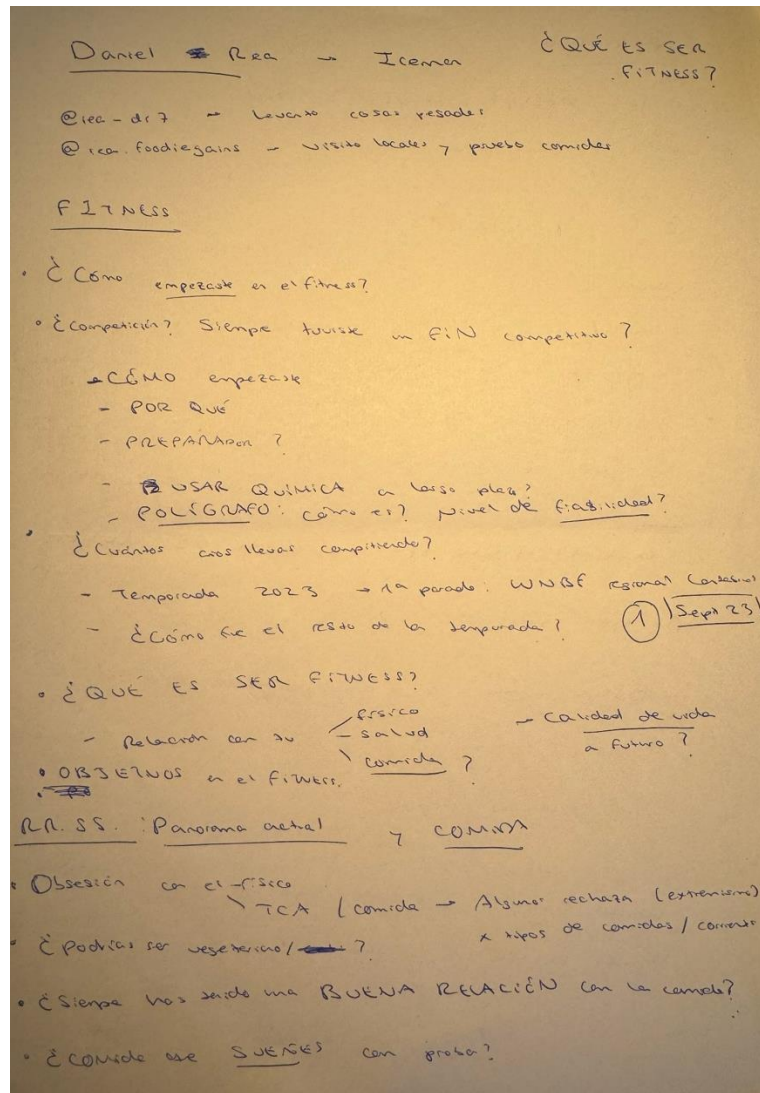 Daniel Rea → Iceman
¿QUÉ ES SER FITNESS?
@rea_dr7 → Levanto cosas pesadas
@rea.foodiegains → visito locales y pruebo comidas
FITNESS
• ¿Cómo empezaste en el fitness?
• ¿Competición? Siempre tuviste un FIN competitivo?
CÓMO empezaste
- POR QUÉ
- PREPARADOR?
- USAR QUÍMICA a largo plazo?
- POLÍGRAFO: cómo es? Nivel de fiabilidad?
• ¿Cuántos años llevas compitiendo?
- Temporada 2023 → 1ª parada: WNBF regional
- ¿Cómo fue el resto de la temporada? ① Sept 23
• ¿QUÉ ES SER FITNESS?
- Relación con tu físico - salud comida? → Calidad de vida a futuro?
• OBJETIVOS en el fitness.
RR.SS.: Panorama actual y COMIDA
• Obsesión con el físico
TCA / comida → Algunos rechaza (extremismo)
x tipos de comidas /
• ¿Podrías ser vegetariano/ ?
• ¿Siempre has tenido una BUENA RELACIÓN con la comida?
• ¿Comida que SUEÑES con probar?